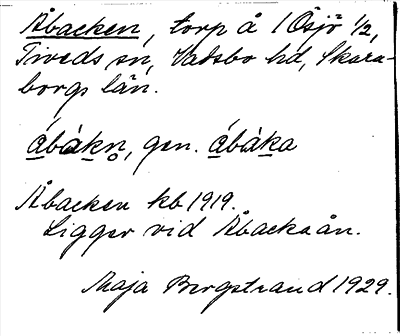 Åbacken, torp å 1 Ösjö 1/2,
Tiveds sn, Vadsbo hd, Skara-
borgs län.
ábàkn̥, gen. ábàka
Åbacken kb 1919.
Ligger vid Åbackaån.
Maja Bergstrand 1929.